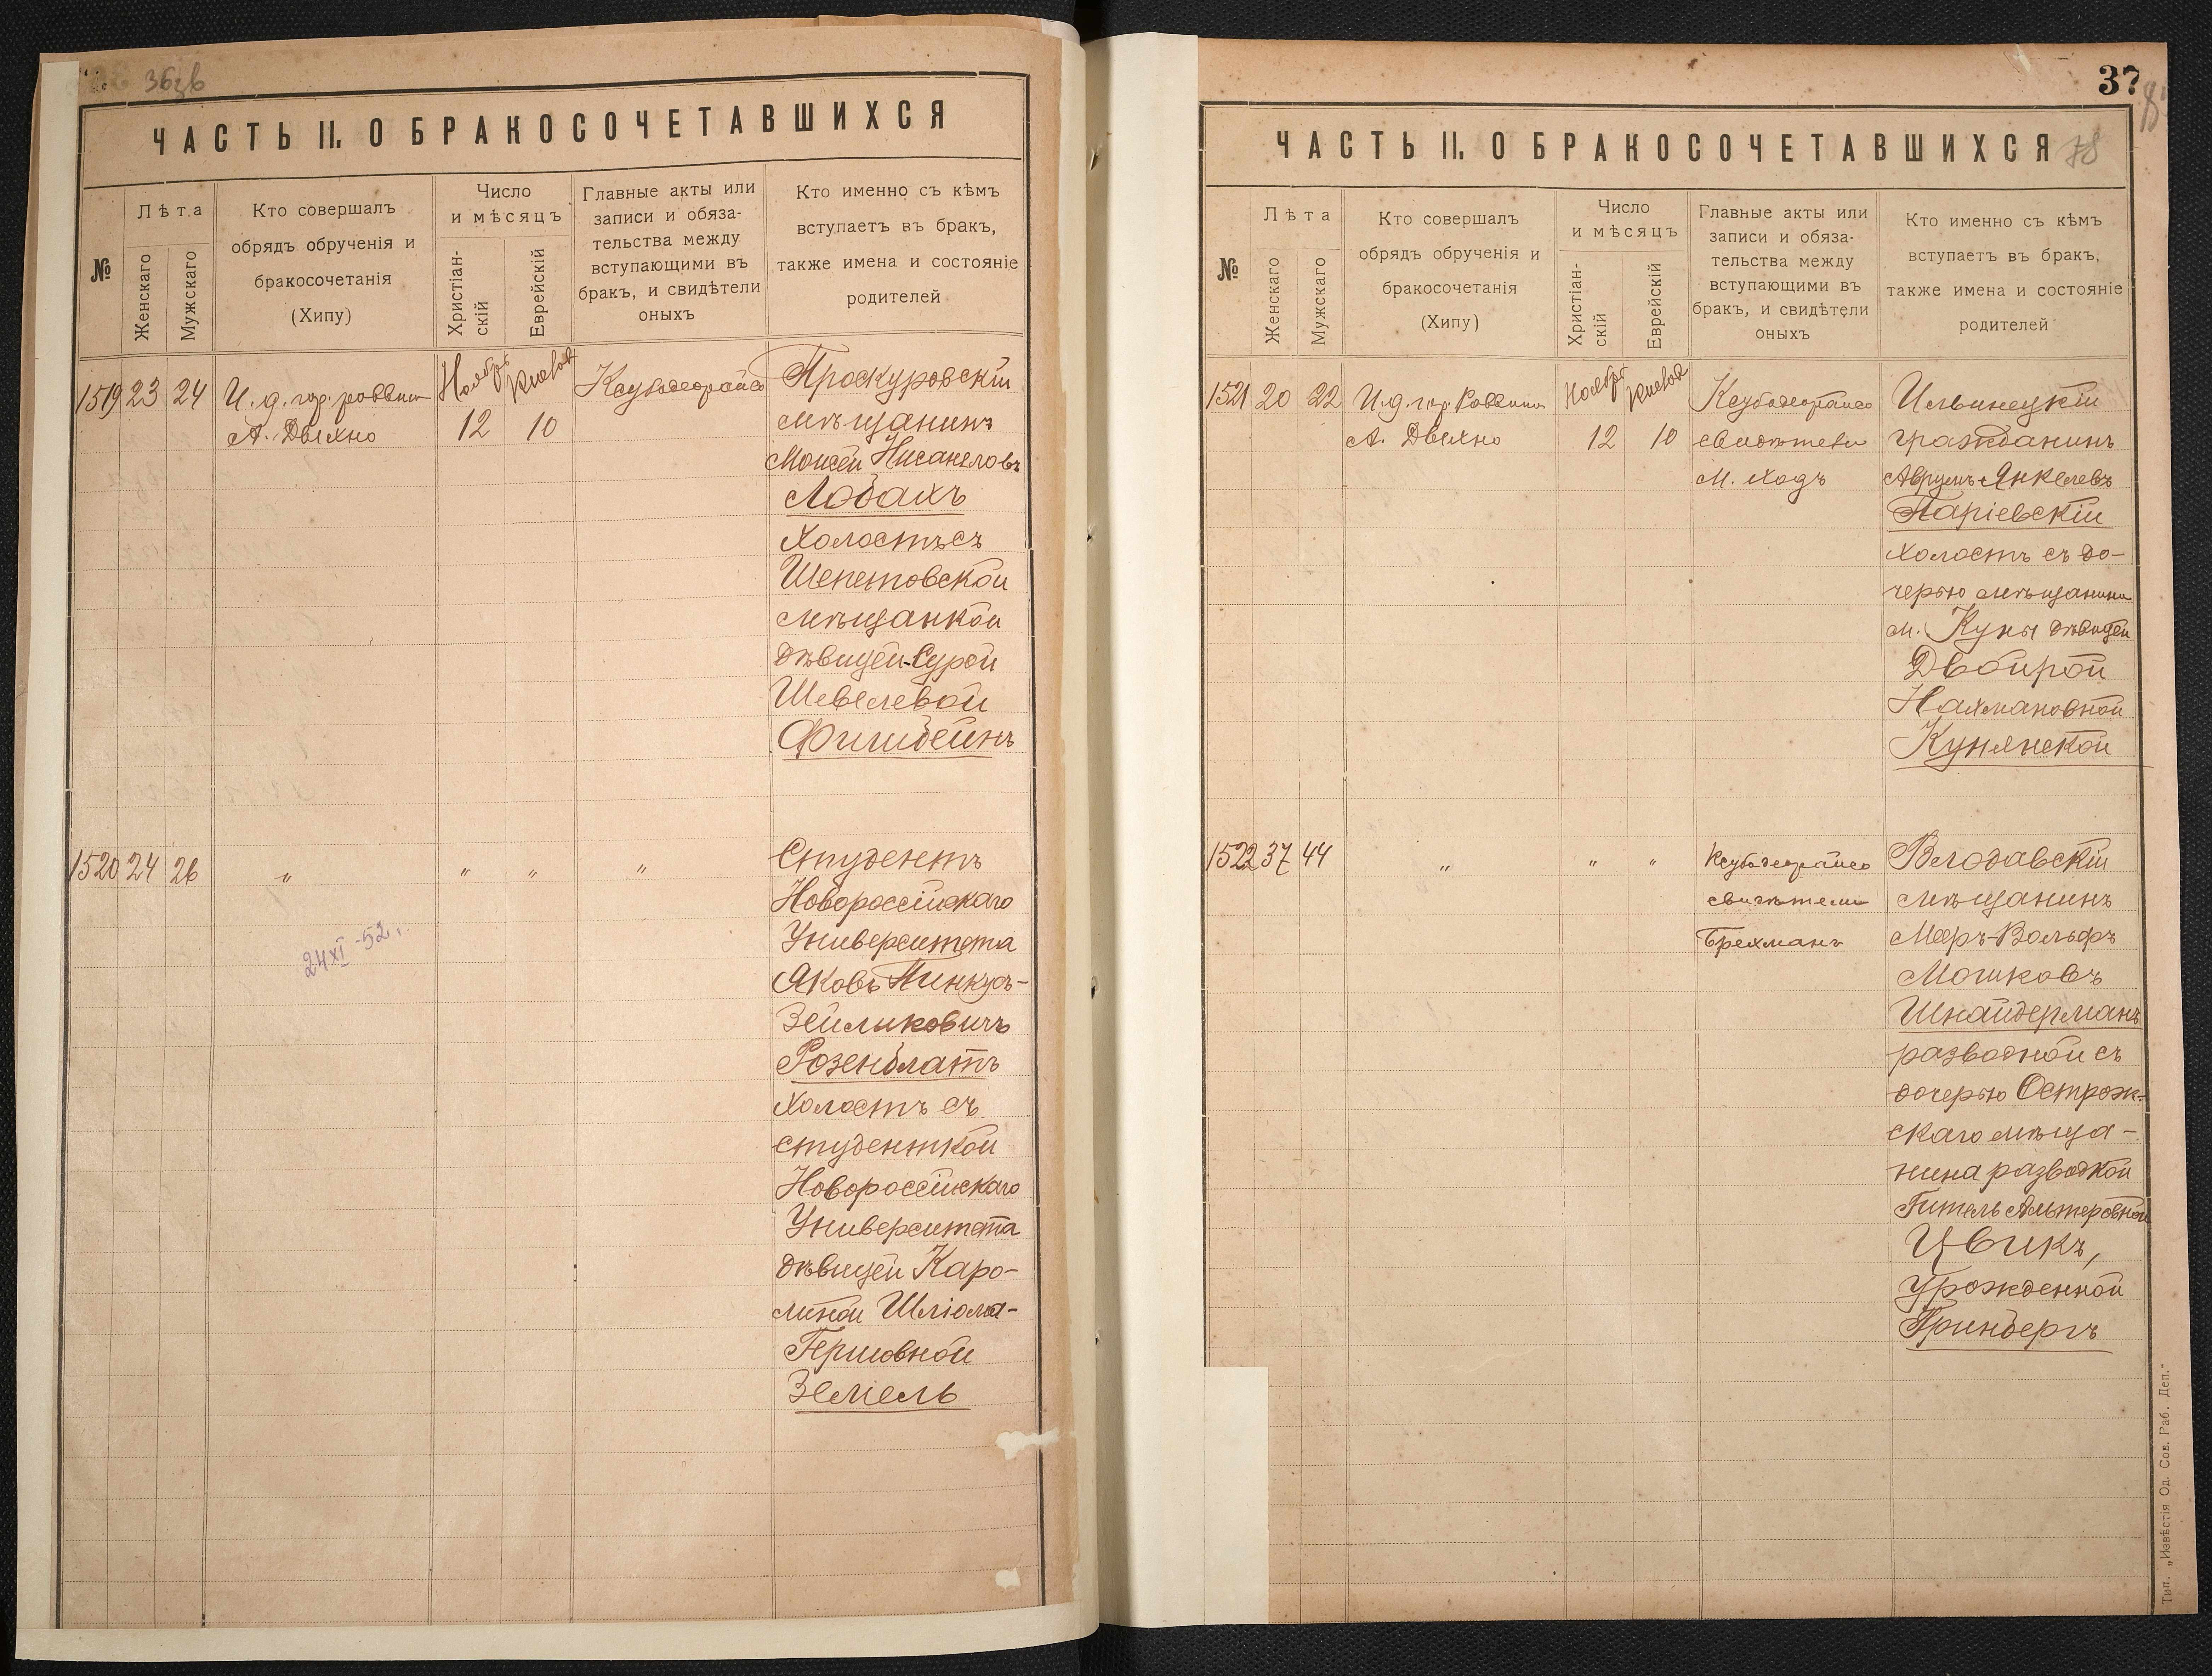 36зв
ЧАСТЬ II. О БРАКОСОЧЕТАВШИХСЯ
№
Лѣта
Женскаго
Мужскаго
Кто совершалъ
обрядъ обрученія и
бракосочетанія
(Хипу)
Число
и мѣсяцъ
Христіан-
скій
Еврейскій
Главные акты или
записи и обяза-
тельства между
вступающими въ
бракъ, и свидѣтели
оныхъ
Кто именно съ кѣмъ
вступаетъ въ бракъ,
также имена и состояніе
родителей
1519 23 24
И. д. гор. раввин
А. Двехно
Ноябрь
12
10
Проскуровскій
мѣщанинъ
Моисей Нисанеловъ
Лобахъ
Холостъ съ
Шепетовской
мѣщанкой
дѣвицей Сурой
Шевелевой
Фишбейнъ
1520 24 26
" " " "
24 XI -52 г.
Студентъ
Новороссійскаго
Университета
Яковъ Пинкусъ-
Зейликовичъ
Розенблатъ
Холостъ съ
студенткой
Новороссійскаго
Университета
дѣвицей Каро-
линой Шліома-
Гершовной
Земель
37
78
ЧАСТЬ II. О БРАКОСОЧЕТАВШИХСЯ
№
Лѣта
Женскаго
Мужскаго
Кто совершалъ
обрядъ обрученія и
бракосочетанія
(Хипу)
Число
и мѣсяцъ
Христіан-
скій
Еврейскій
Главные акты или
записи и обяза-
тельства между
вступающими въ
бракъ, и свидѣтели
оныхъ
Кто именно съ кѣмъ
вступаетъ въ бракъ,
также имена и состояніе
родителей
1521 20 22
И. д. гор. Раввина
А. Двехно
Ноябрь
12
10
свидѣтели
М. Ходъ
Ильинецкій
гражданинъ
Аврумъ Янкелевъ
Паріевскій
холостъ съ до-
черью мѣщанина
м. Куны дѣвицей
Двойрой
Нахмановной
Кунянской
1522 37 44
" " "
свидѣтели
Брехманъ
Влодавскій
мѣщанинъ
Мееръ-Вольфъ
Мошковъ
Шнайдерманъ
разводной съ
дочерью Острож-
скаго мѣща-
нина разводкой
Гитель Альтеровной
Цвикъ,
урожденной
Гринбергъ
Тип. „Извѣстія Од. Сов. Раб. Деп."